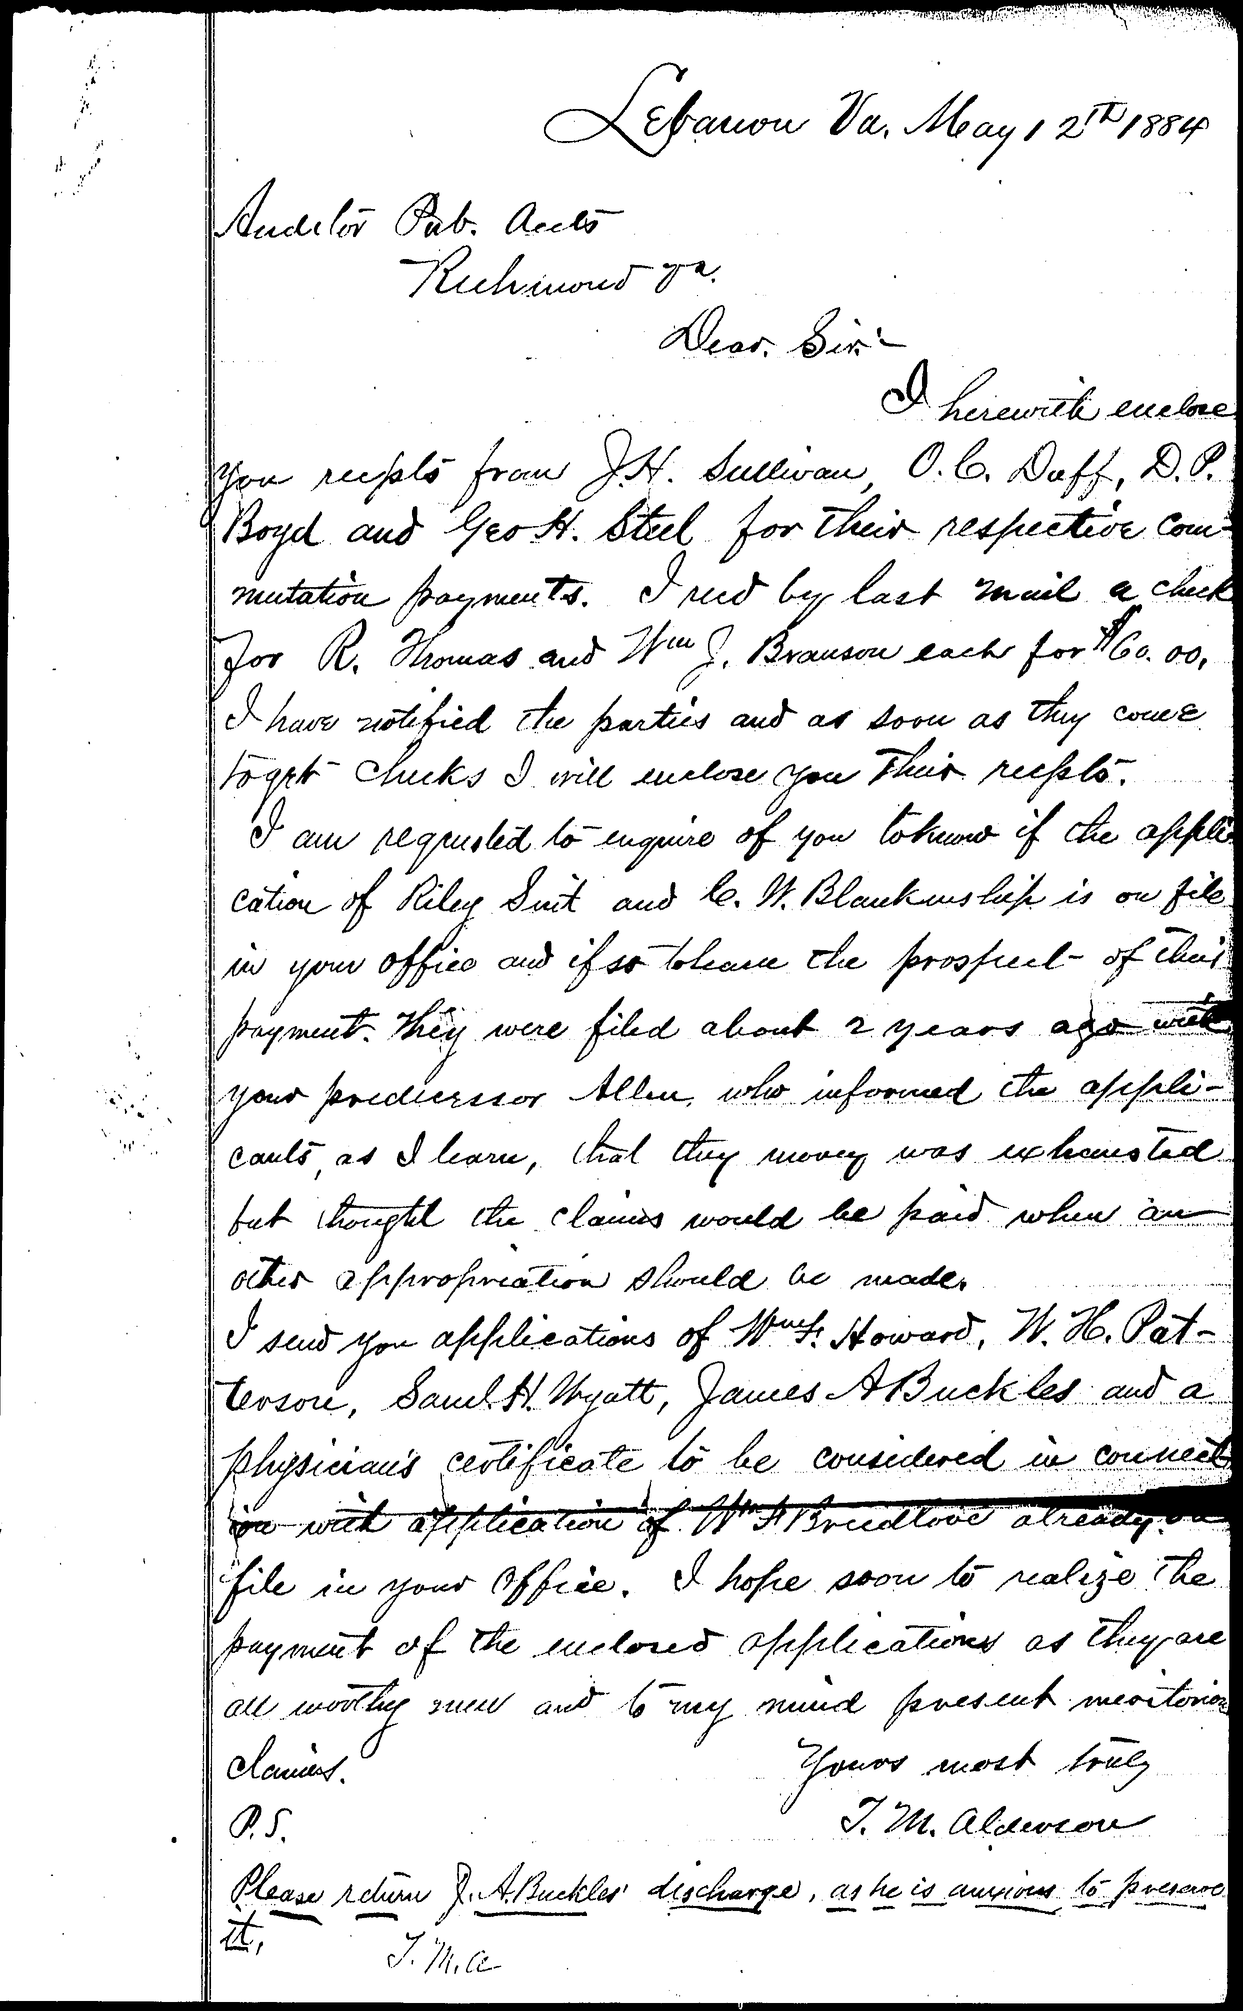 Lebanon Va. May 12th 1884
Auditor Pub. Accts
Richmond Va.
Dear. Sir:-
I herewith enclose
you recpts from J. H. Sullivan, O. C. Duff, D. P.
Boyd and Geo H. Steel for their respective com-
mutation payments. I recd by last mail a check
for R. Thomas and Wm J. Branson each for $60.00.
I have notified the parties and as soon as they come
to get checks I will enclose you their recpts.
I am requested to enquire of you to know if the appli
cation of Riley Suit and C. W. Blankenship is on file
in your office and if so to learn the prospect- of their
payment. They were filed about 2 years ago with
your predecessor Allen, who informed the appli-
cants, as I learn, that they money was exhausted
but thought the claims would be paid when an
other appropriation should be made.
I send you applications of Wm F. Howard, W. H. Pat-
terson, Saml. H. Wyatt, James A Buckles and a
physician's certificate to be considered in connect
ion with application of Wm F Breedlove already on
file in your office. I hope soon to realize the
payment of the enclosed applications as they are
all worthy men and to my mind present meritorious
claims.
Yours most truly
T. M. Alderson
P.S.
Please return J. A. Buckles' discharge, as he is anxious to preserve
it.
T. M. A